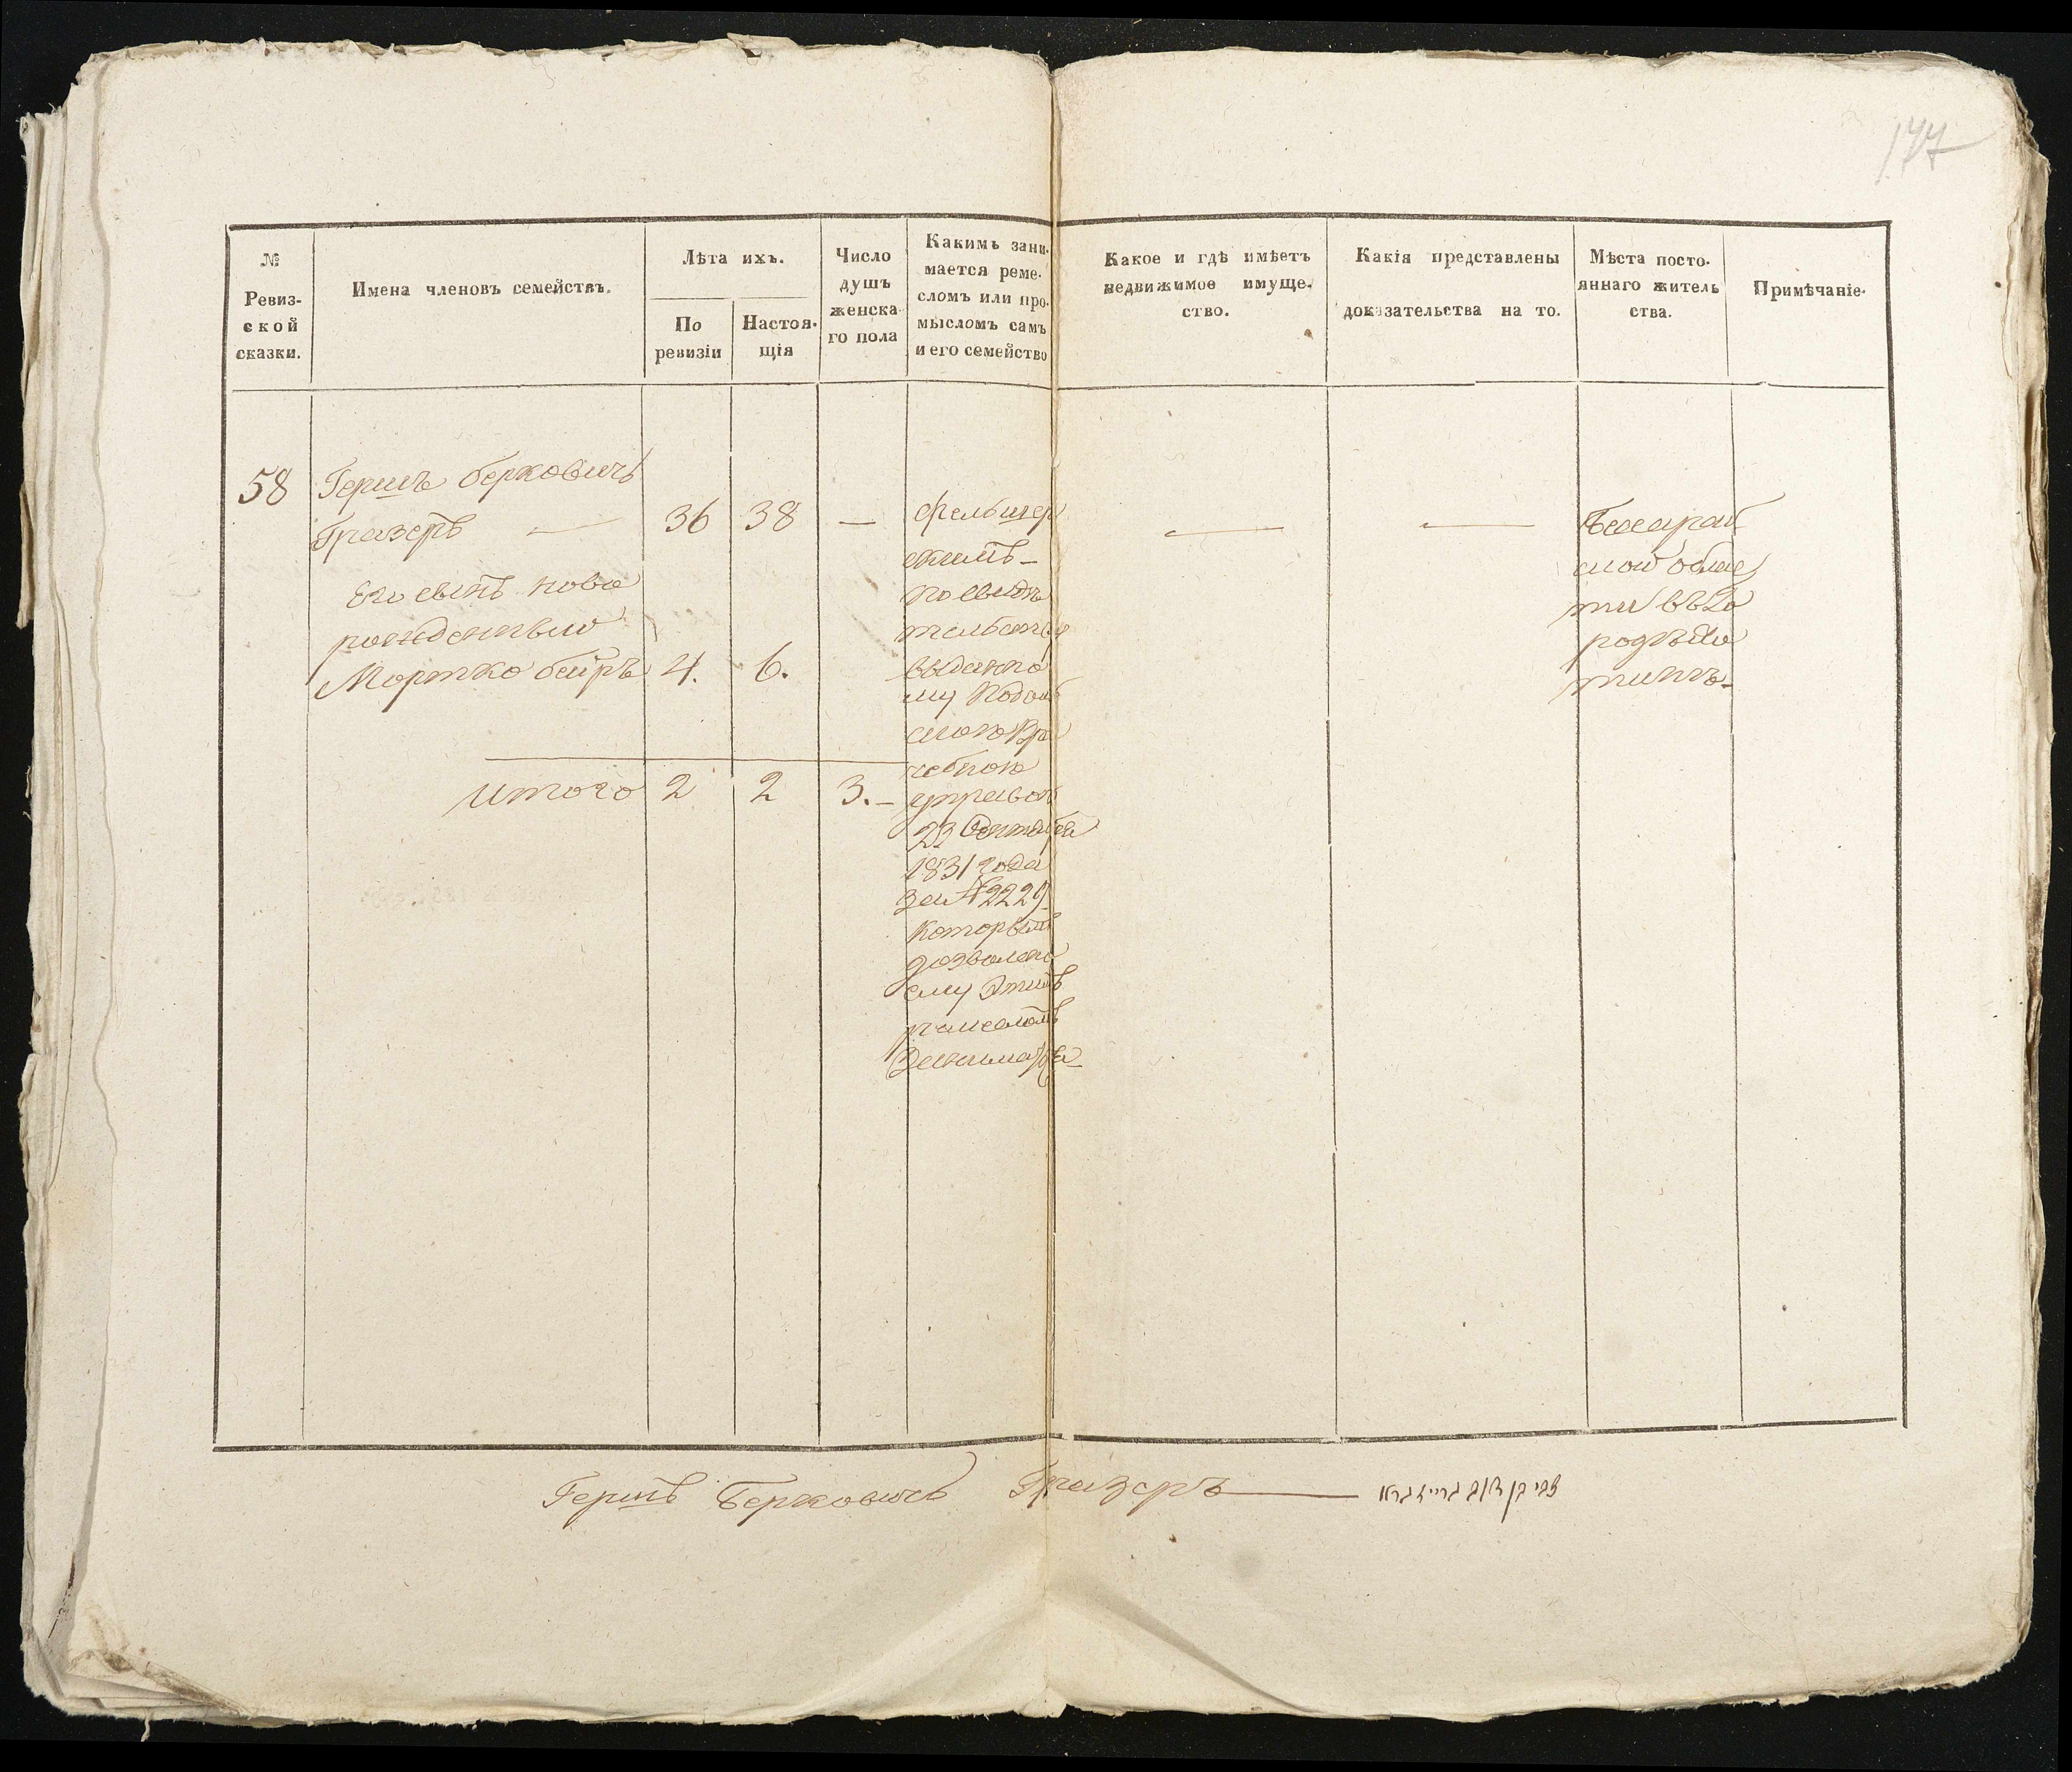 177
№
Ревиз-
ской
сказки.
Имена членовъ семействъ.
Лѣта ихъ.
По
ревизіи
Настоя-
щія
Число
душъ
женска-
го пола
Какимъ зани-
мается реме-
сломъ или про-
мысломъ самъ
и его семейство
Какое и гдѣ имѣетъ
недвижимое имуще-
ство.
Какія представлены
доказательства на то.
Мѣста посто-
яннаго житель
ства.
Примѣчаніе.
58 Гершъ Берковичъ
Гразеръ — 36 38 —
Его сынъ ново
рожденный
Мортко Беиръ 4. 6.
Итого 2 2 3.—
Фельшер
скимъ —
по свидѣ
тельству
выданно
му Подоль
скою Вра
чебною
управою
23 Октября
1831 года
за № 2229
которымъ
дозволено
ему этимъ
ремесломъ
заниматся —
Бессараб
ской облас
ти въ го
родѣ Хо
тинѣ. —
Гершъ Берковичъ Гразеръ —
צבי בן